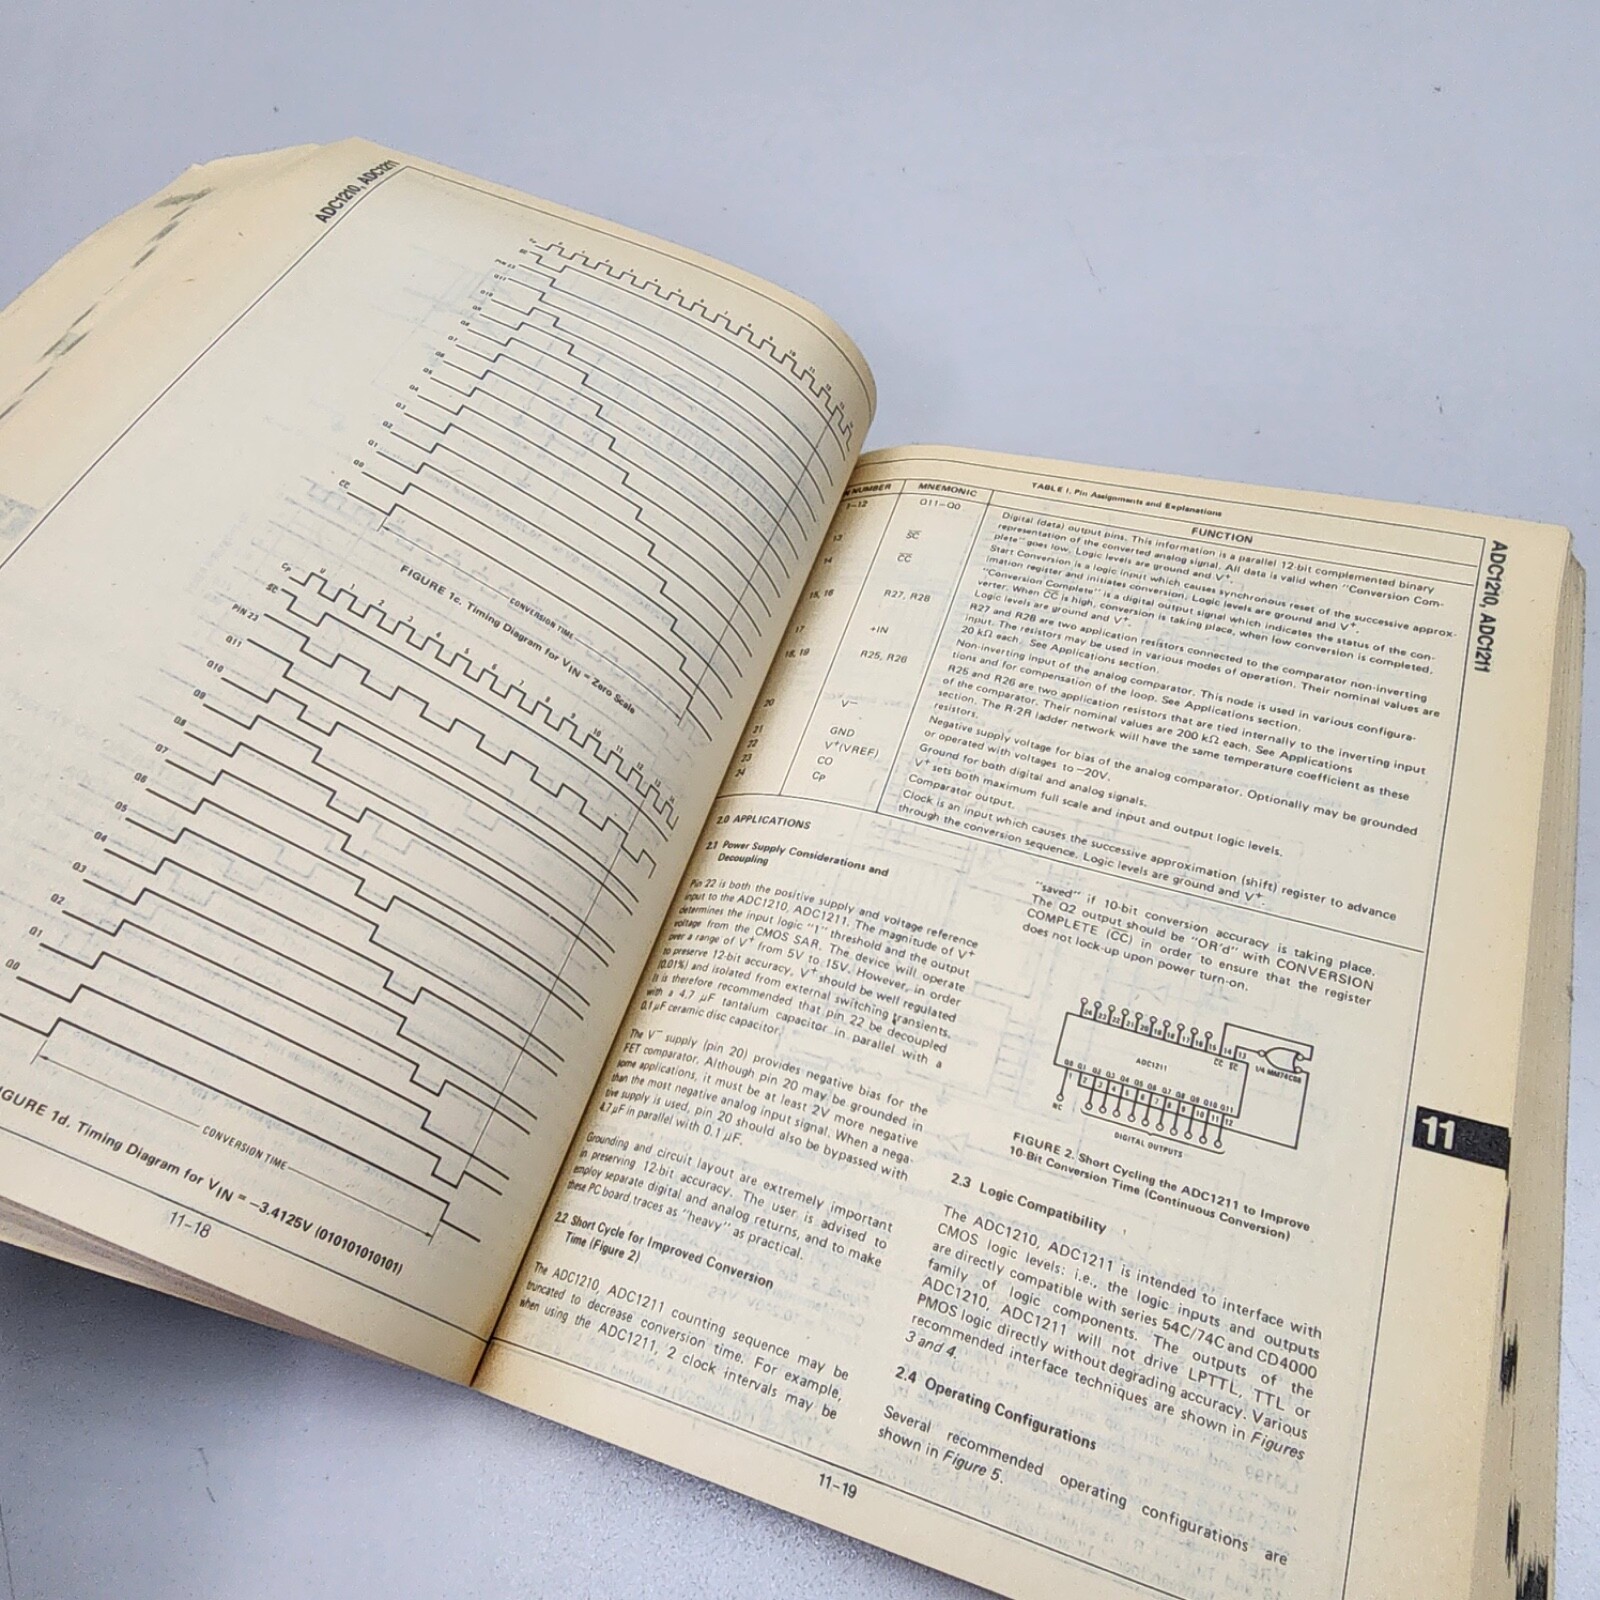 ADC1210, ADC1211
CP
SC
PIN 23
Q11
Q10
Q9
Q8
Q7
Q6
Q5
Q4
Q3
Q2
Q1
Q0
CC
CONVERSION TIME
FIGURE 1c. Timing Diagram for VIN = Zero Scale
CP
SC
PIN 23
Q11
Q10
Q9
Q8
Q7
Q6
Q5
Q4
Q3
Q2
Q1
Q0
CONVERSION TIME
IGURE 1d. Timing Diagram for VIN = −3.4125V (010101010101)
11-18
ADC1210, ADC1211
TABLE I. Pin Assignments and Explanations
NUMBER MNEMONIC FUNCTION
1–12 Q11–Q0 Digital (data) output pins. This information is a parallel 12-bit complemented binary
representation of the converted analog signal. All data is valid when "Conversion Com-
plete" goes low. Logic levels are ground and V+.
13 SC Start Conversion is a logic input which causes synchronous reset of the successive approx-
imation register and initiates conversion. Logic levels are ground and V+.
14 CC "Conversion Complete" is a digital output signal which indicates the status of the con-
verter. When CC is high, conversion is taking place, when low conversion is completed.
Logic levels are ground and V+.
15, 16 R27, R28 R27 and R28 are two application resistors connected to the comparator non-inverting
input. The resistors may be used in various modes of operation. Their nominal values are
20 kΩ each. See Applications section.
17 +IN Non-inverting input of the analog comparator. This node is used in various configura-
tions and for compensation of the loop. See Applications section.
18, 19 R25, R26 R25 and R26 are two application resistors that are tied internally to the inverting input
of the comparator. Their nominal values are 200 kΩ each. See Applications
section. The R-2R ladder network will have the same temperature coefficient as these
resistors.
20 V− Negative supply voltage for bias of the analog comparator. Optionally may be grounded
or operated with voltages to −20V.
21 GND Ground for both digital and analog signals.
22 V+(VREF) V+ sets both maximum full scale and input and output logic levels.
23 CO Comparator output.
24 CP Clock is an input which causes the successive approximation (shift) register to advance
through the conversion sequence. Logic levels are ground and V+.
2.0 APPLICATIONS
2.1 Power Supply Considerations and
Decoupling
Pin 22 is both the positive supply and voltage reference
input to the ADC1210, ADC1211. The magnitude of V+
determines the input logic "1" threshold and the output
voltage from the CMOS SAR. The device will operate
over a range of V+ from 5V to 15V. However, in order
to preserve 12-bit accuracy, V+ should be well regulated
(0.01%) and isolated from external switching transients.
It is therefore recommended that pin 22 be decoupled
with a 4.7 μF tantalum capacitor in parallel with a
0.1 μF ceramic disc capacitor.
The V− supply (pin 20) provides negative bias for the
FET comparator. Although pin 20 may be grounded in
some applications, it must be at least 2V more negative
than the most negative analog input signal. When a nega-
tive supply is used, pin 20 should also be bypassed with
4.7 μF in parallel with 0.1 μF.
Grounding and circuit layout are extremely important
in preserving 12-bit accuracy. The user is advised to
employ separate digital and analog returns, and to make
these PC board traces as "heavy" as practical.
2.2 Short Cycle for Improved Conversion
Time (Figure 2)
The ADC1210, ADC1211 counting sequence may be
truncated to decrease conversion time. For example,
when using the ADC1211, 2 clock intervals may be
"saved" if 10-bit conversion accuracy is taking place.
The Q2 output should be "OR'd" with CONVERSION
COMPLETE (CC) in order to ensure that the register
does not lock-up upon power turn-on.
24 23 22 21 20 19 18 17 16 15 14 13
CC SC
ADC1211
1/4 MM74C08
Q0 Q1 Q2 Q3 Q4 Q5 Q6 Q7 Q8 Q9 Q10 Q11
1 2 3 4 5 6 7 8 9 10 11 12
NC
DIGITAL OUTPUTS
FIGURE 2. Short Cycling the ADC1211 to Improve
10-Bit Conversion Time (Continuous Conversion)
2.3 Logic Compatibility
The ADC1210, ADC1211 is intended to interface with
CMOS logic levels: i.e., the logic inputs and outputs
are directly compatible with series 54C/74C and CD4000
family of logic components. The outputs of the
ADC1210, ADC1211 will not drive LPTTL, TTL or
PMOS logic directly without degrading accuracy. Various
recommended interface techniques are shown in Figures
3 and 4.
2.4 Operating Configurations
Several recommended operating configurations are
shown in Figure 5.
11
11-19